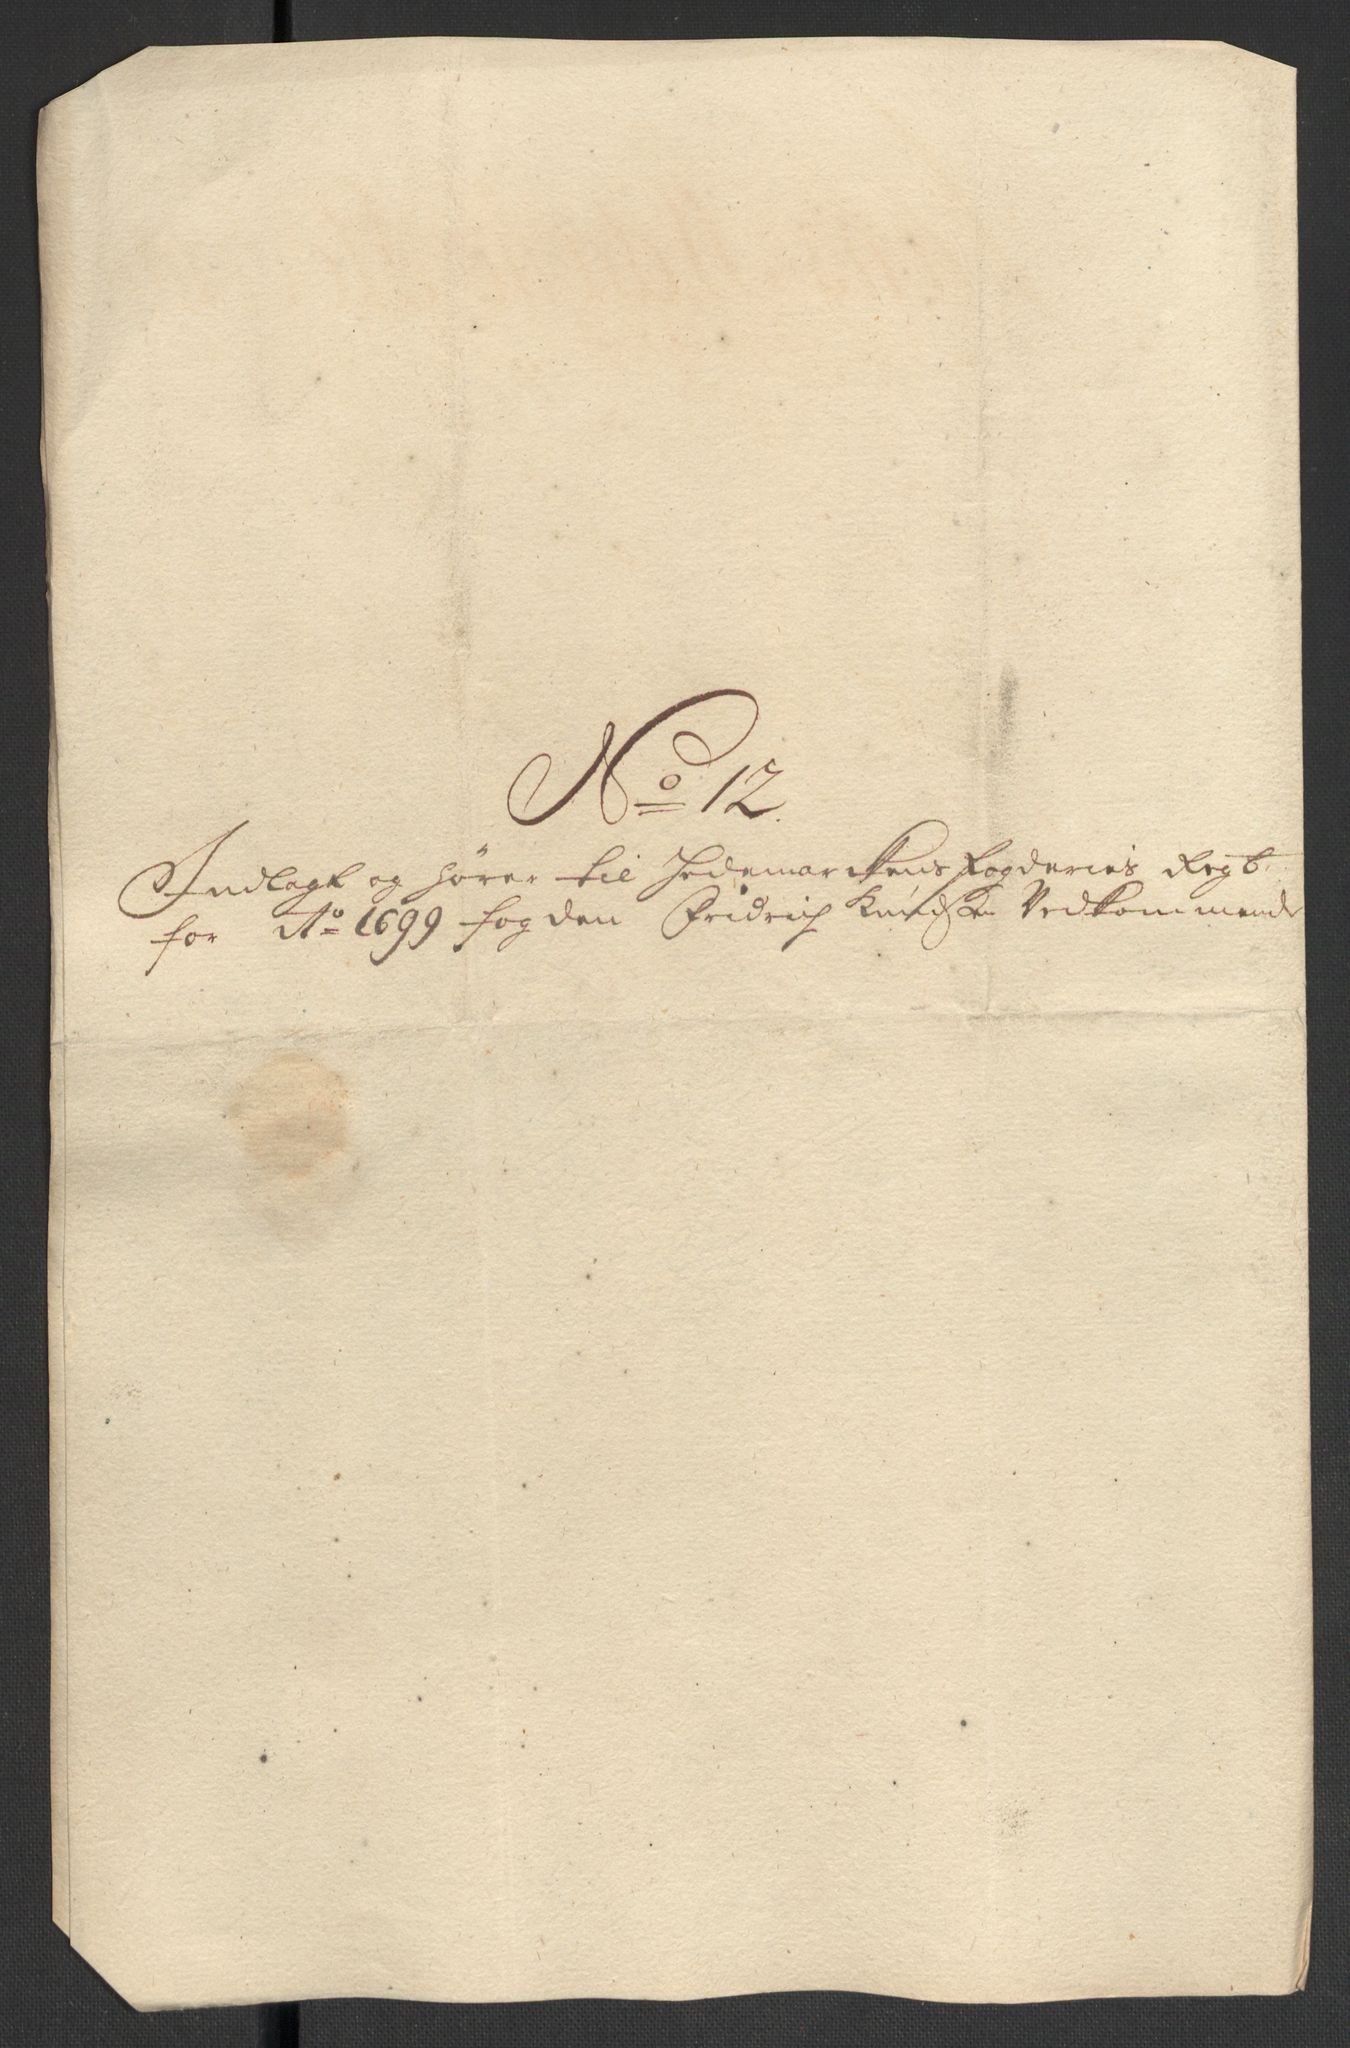 No 12.
Indlagt og hører til Hedemarckens fogderies Regb:
for Ao 1699 fogden Fridrich Knudsen Vedkommende